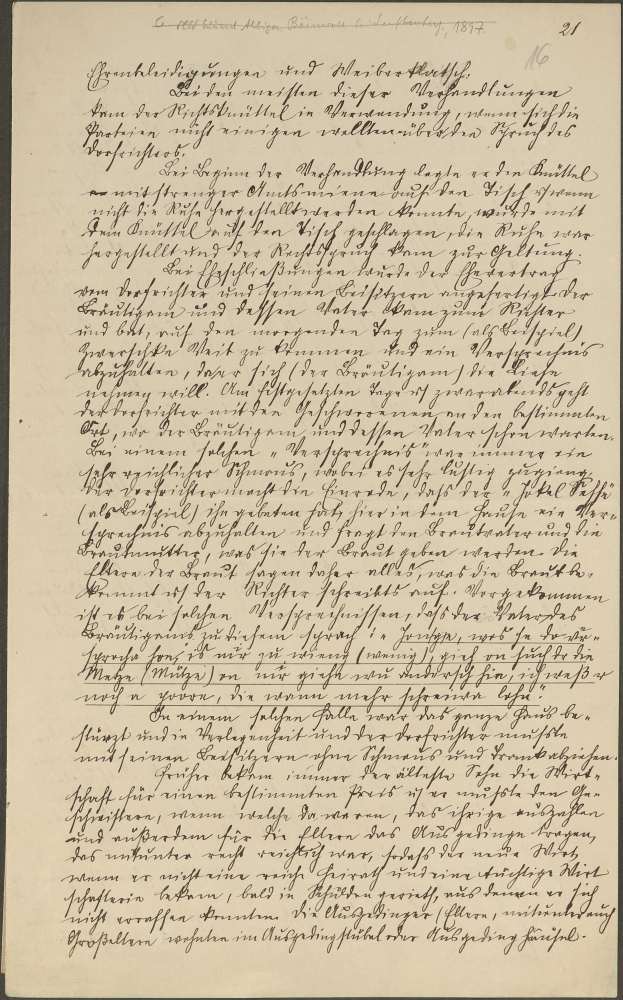 1897. 21
16
Ehrenbeleidigungen und Weiberklatsch.
Bei den meisten dieser Verhandlungen
kam der Richtsknüttel in Verwendung, wenn sich die
Parteien nicht einigen wollten über den Spruch des
Dorfrichters.
Bei Beginn der Verhandlung legte er den Knüttel
mit strenger Amtsmiene auf den Tisch u. wenn
nicht die Ruhe hergestellt werden konnte, wurde mit
dem Knüttel auf den Tisch geschlagen, die Ruhe war
hergestellt und der Rechtsspruch kam zur Geltung.
Bei Eheschließungen wurde der Ehevertrag
vom Dorfrichter und seinen Beisitzern angefertigt. Der
Bräutigam und dessen Vater kam zum Richter
und bat, auf den morgenden Tag zum (als Beispiel)
Zwerschke Veit zu kommen und ein Versprechnis
abzuhalten, da er sich (der Bräutigam) die Liese
nehmen will. Am festgesetzten Tage u. zwar abends geht
der Dorfrichter mit den Geschworenen an den bestimmten
Ort, wo der Bräutigam und dessen Vater schon warten.
Bei einem solchen „Versprechnis" war immer ein
sehr reichlicher Schmaus, wobei es sehr lustig zuging.
Der Dorfrichter macht die Einrede, dass der „Jokel Seffe"
(als Beispiel) ihn gebeten hat, hier in dem Hause ein Ver-
sprechnis abzuhalten und fragt den Brautvater und die
Brautmutter, was sie der Braut geben werden. Die
Eltern der Braut sagen daher alles, was die Braut be-
kommt u. der Richter schreibts auf. Vorgekommen
ist es bei solchen Versprechnissen, dass der Vater des
Bräutigams zu diesem sprach: Jonge, wos se do vr-
sprocha hon, is mir zu wieng (wenig), gieh on such dr die
Metze (Mütze) on mir giehn wu andersch hin, ich weß r
noch a poore, die wann mehr schreiwa lohn."
In einem solchen Falle war das ganze Haus be-
stürzt und in Verlegenheit und der Dorfrichter musste
mit seinen Beisitzern ohne Schmaus und Trank abziehen.
Früher bekam immer der älteste Sohn die Wirt-
schaft für einen bestimmten Preis u. er musste den Ge-
schwistern, wenn welche da waren, das ihrige auszahlen
und außerdem für die Eltern das Ausgedinge tragen,
das mitunter recht reichlich war, sodass der neue Wirt,
wenn er nicht eine reiche Heirath und eine tüchtige Wirt
schafterin bekam, bald in Schulden gerieth, aus denen er sich
nicht erraffen konnte. Die Ausgedinger (Eltern, mitunter auch
Großeltern wohnten im Ausgedingstübel oder Ausgedinghäusel.